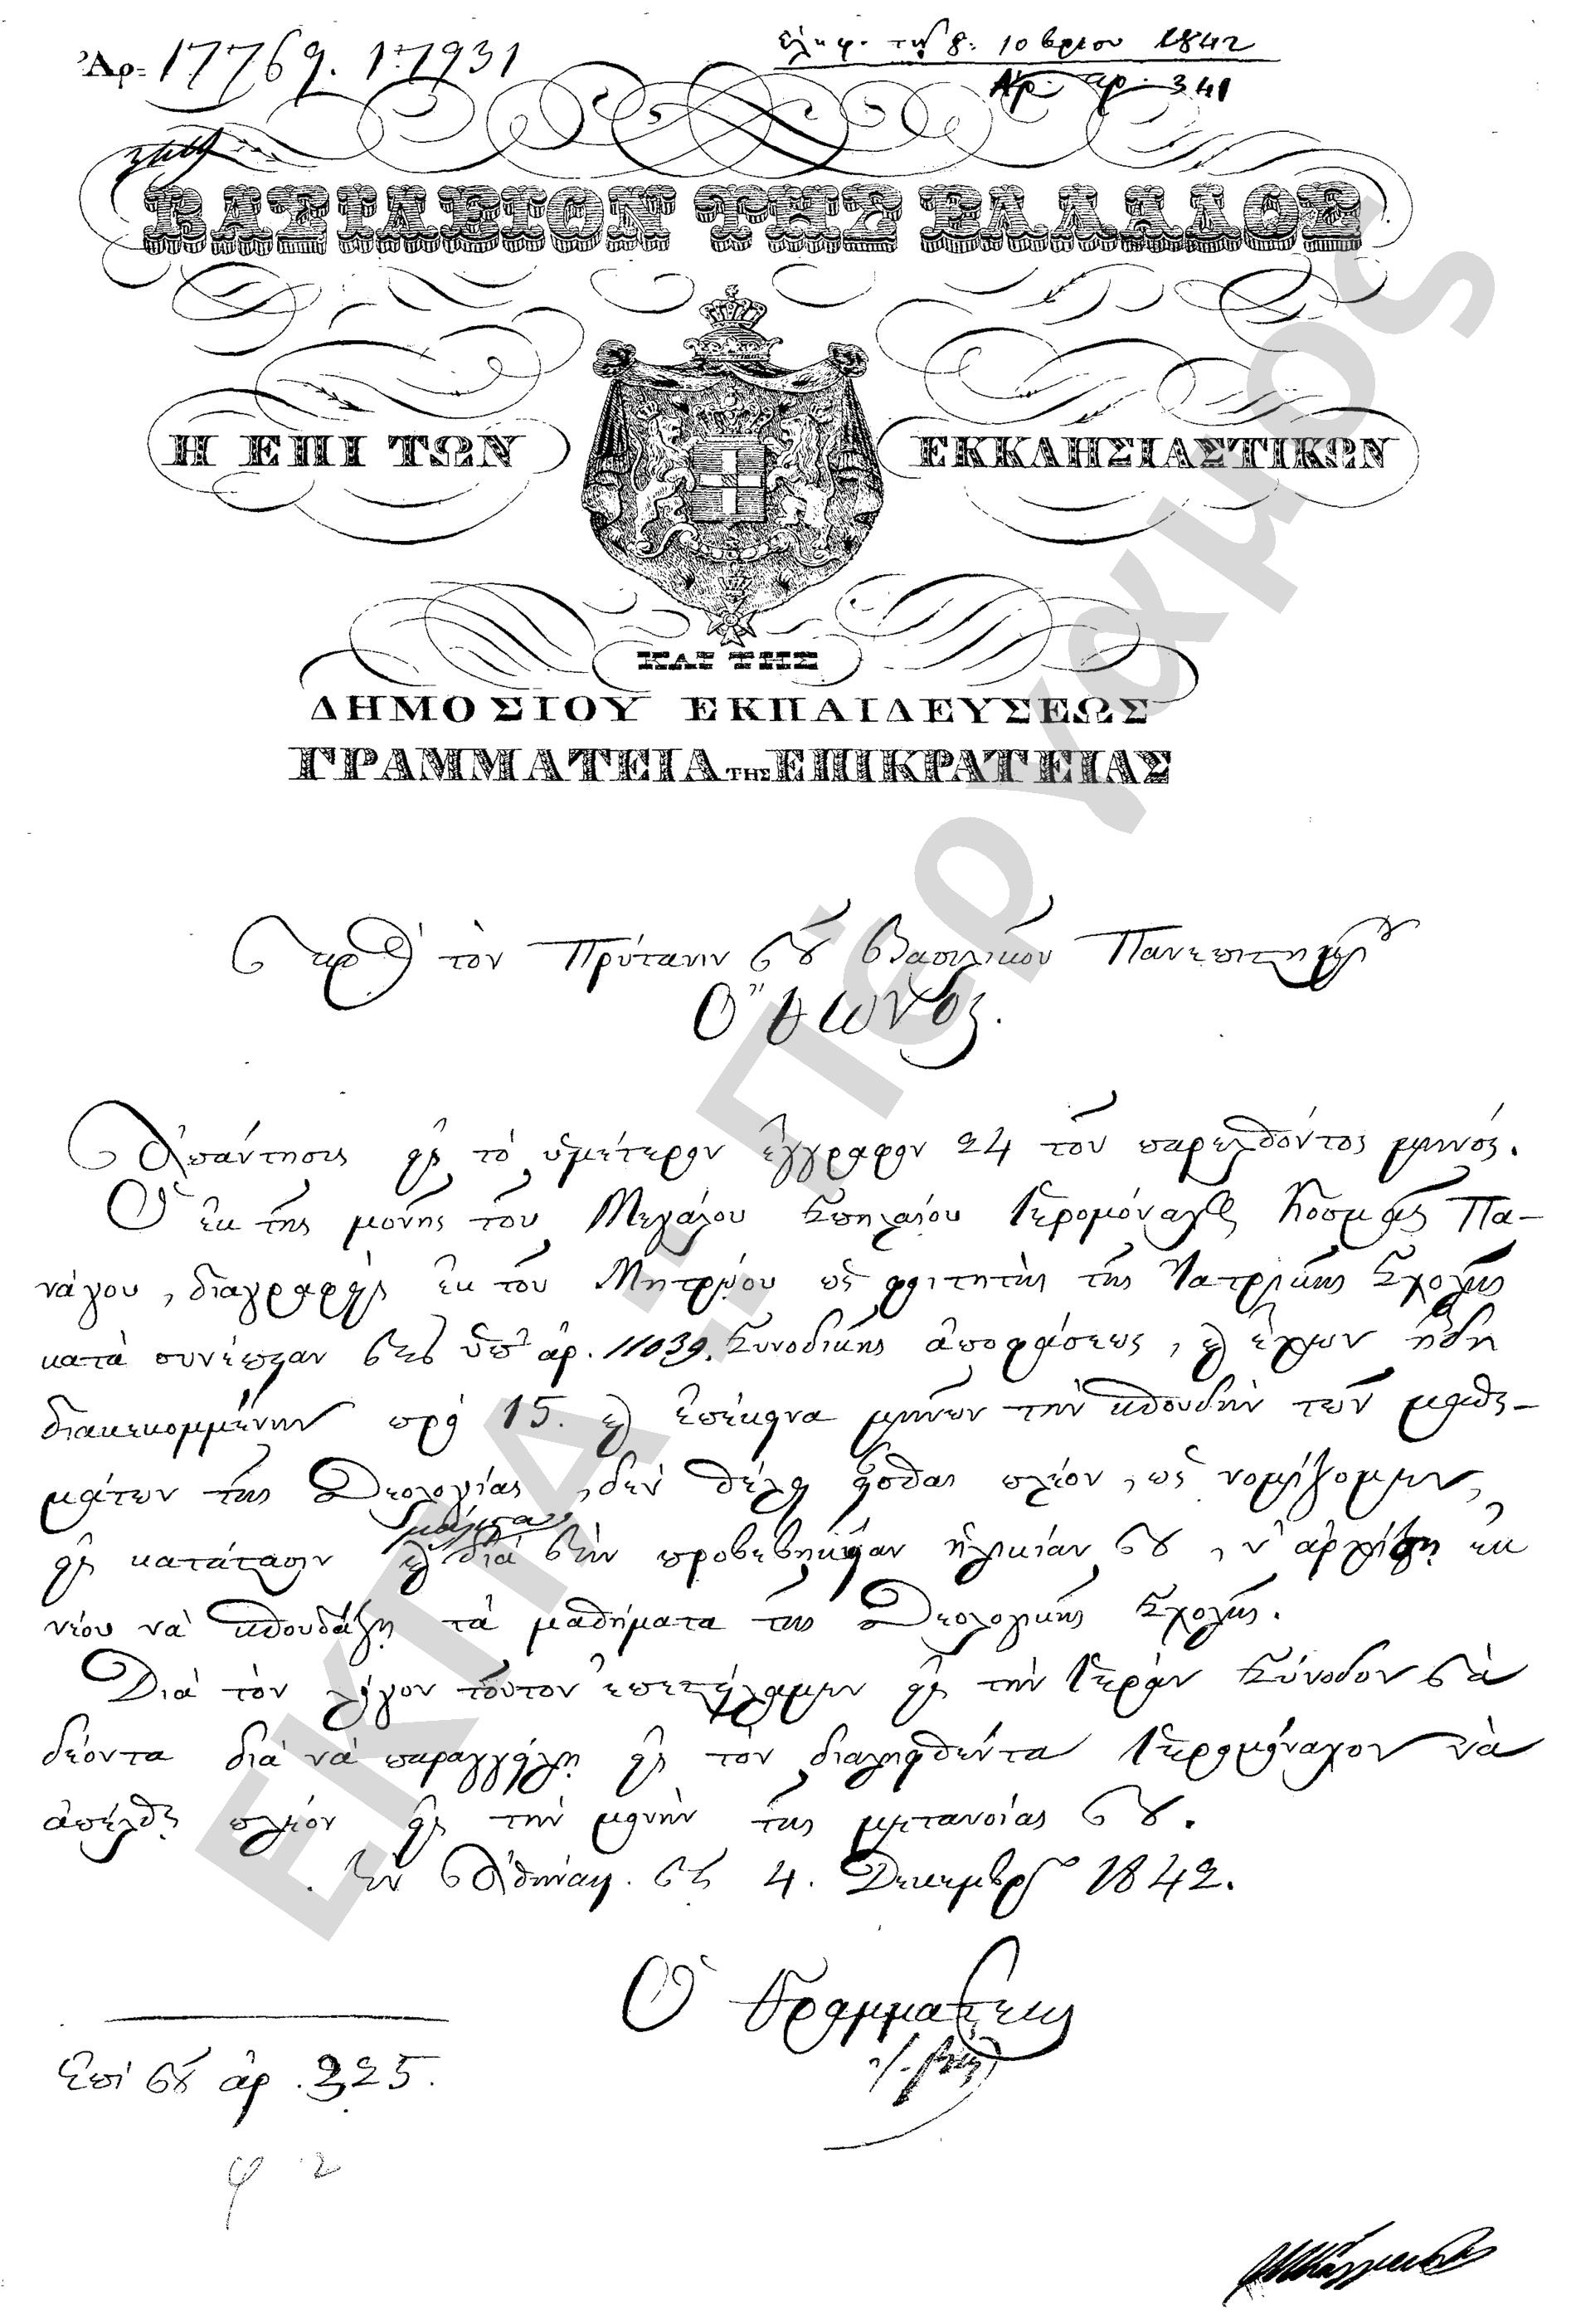 Ἀρ: 17769. 17931
ἐλήφ. τῇ 8: 10βρίου 1842
Ἀρ. πρ. 341
ΒΑΣΙΛΕΙΟΝ ΤΗΣ ΕΛΛΑΔΟΣ
Η ΕΠΙ ΤΩΝ ΕΚΚΛΗΣΙΑΣΤΙΚΩΝ
ΚΑΙ ΤΗΣ
ΔΗΜΟΣΙΟΥ ΕΚΠΑΙΔΕΥΣΕΩΣ
ΓΡΑΜΜΑΤΕΙΑ ΤΗΣ ΕΠΙΚΡΑΤΕΙΑΣ
Πρὸς τὸν Πρύτανιν τοῦ Βασιλικοῦ Πανεπιστημίου
Ὄθωνος.
Ἀπάντησις εἰς τὸ ὑμέτερον ἔγγραφον 24 τοῦ παρελθόντος μηνός.
Ὁ ἐκ τῆς μονῆς τοῦ Μεγάλου Σπηλαίου Ἱερομόναχος Κοσμᾶς Πα-
νάγου, διαγραφεὶς ἐκ τοῦ Μητρῴου ὡς φοιτητὴς τῆς Ἰατρικῆς Σχολῆς
κατὰ συνέπειαν τῆς ὑπ' ἀρ. 11039. Συνοδικῆς ἀποφάσεως, καὶ ἔχων ἤδη
διακεκομμένην πρὸ 15. καὶ ἐπέκεινα μηνῶν τὴν σπουδὴν τῶν μαθη-
μάτων τῆς Θεολογίας, δὲν θέλει εἶσθαι πλέον, ὡς νομίζομεν,
εἰς κατάστασιν καὶ μάλιστα διὰ τὴν προβεβηκυῖαν ἡλικίαν του, ν' ἀρχίσῃ ἐκ
νέου νὰ σπουδάζῃ τὰ μαθήματα τῆς Θεολογικῆς Σχολῆς.
Διὰ τὸν λόγον τοῦτον ἐπεστείλαμεν εἰς τὴν Ἱερὰν Σύνοδον τὰ
δέοντα διὰ νὰ παραγγείλῃ εἰς τὸν διαληφθέντα Ἱερομόναχον νὰ
ἀπέλθῃ πλέον εἰς τὴν μονὴν τῆς μετανοίας του.
Ἐν Ἀθήναις. τῇ 4. Δεκεμβρίου 1842.
Ὁ Γραμματεὺς
Ἐπὶ τοῦ ἀρ. 325.
φ 2
ΕΚΠΑ - Πέργαμος